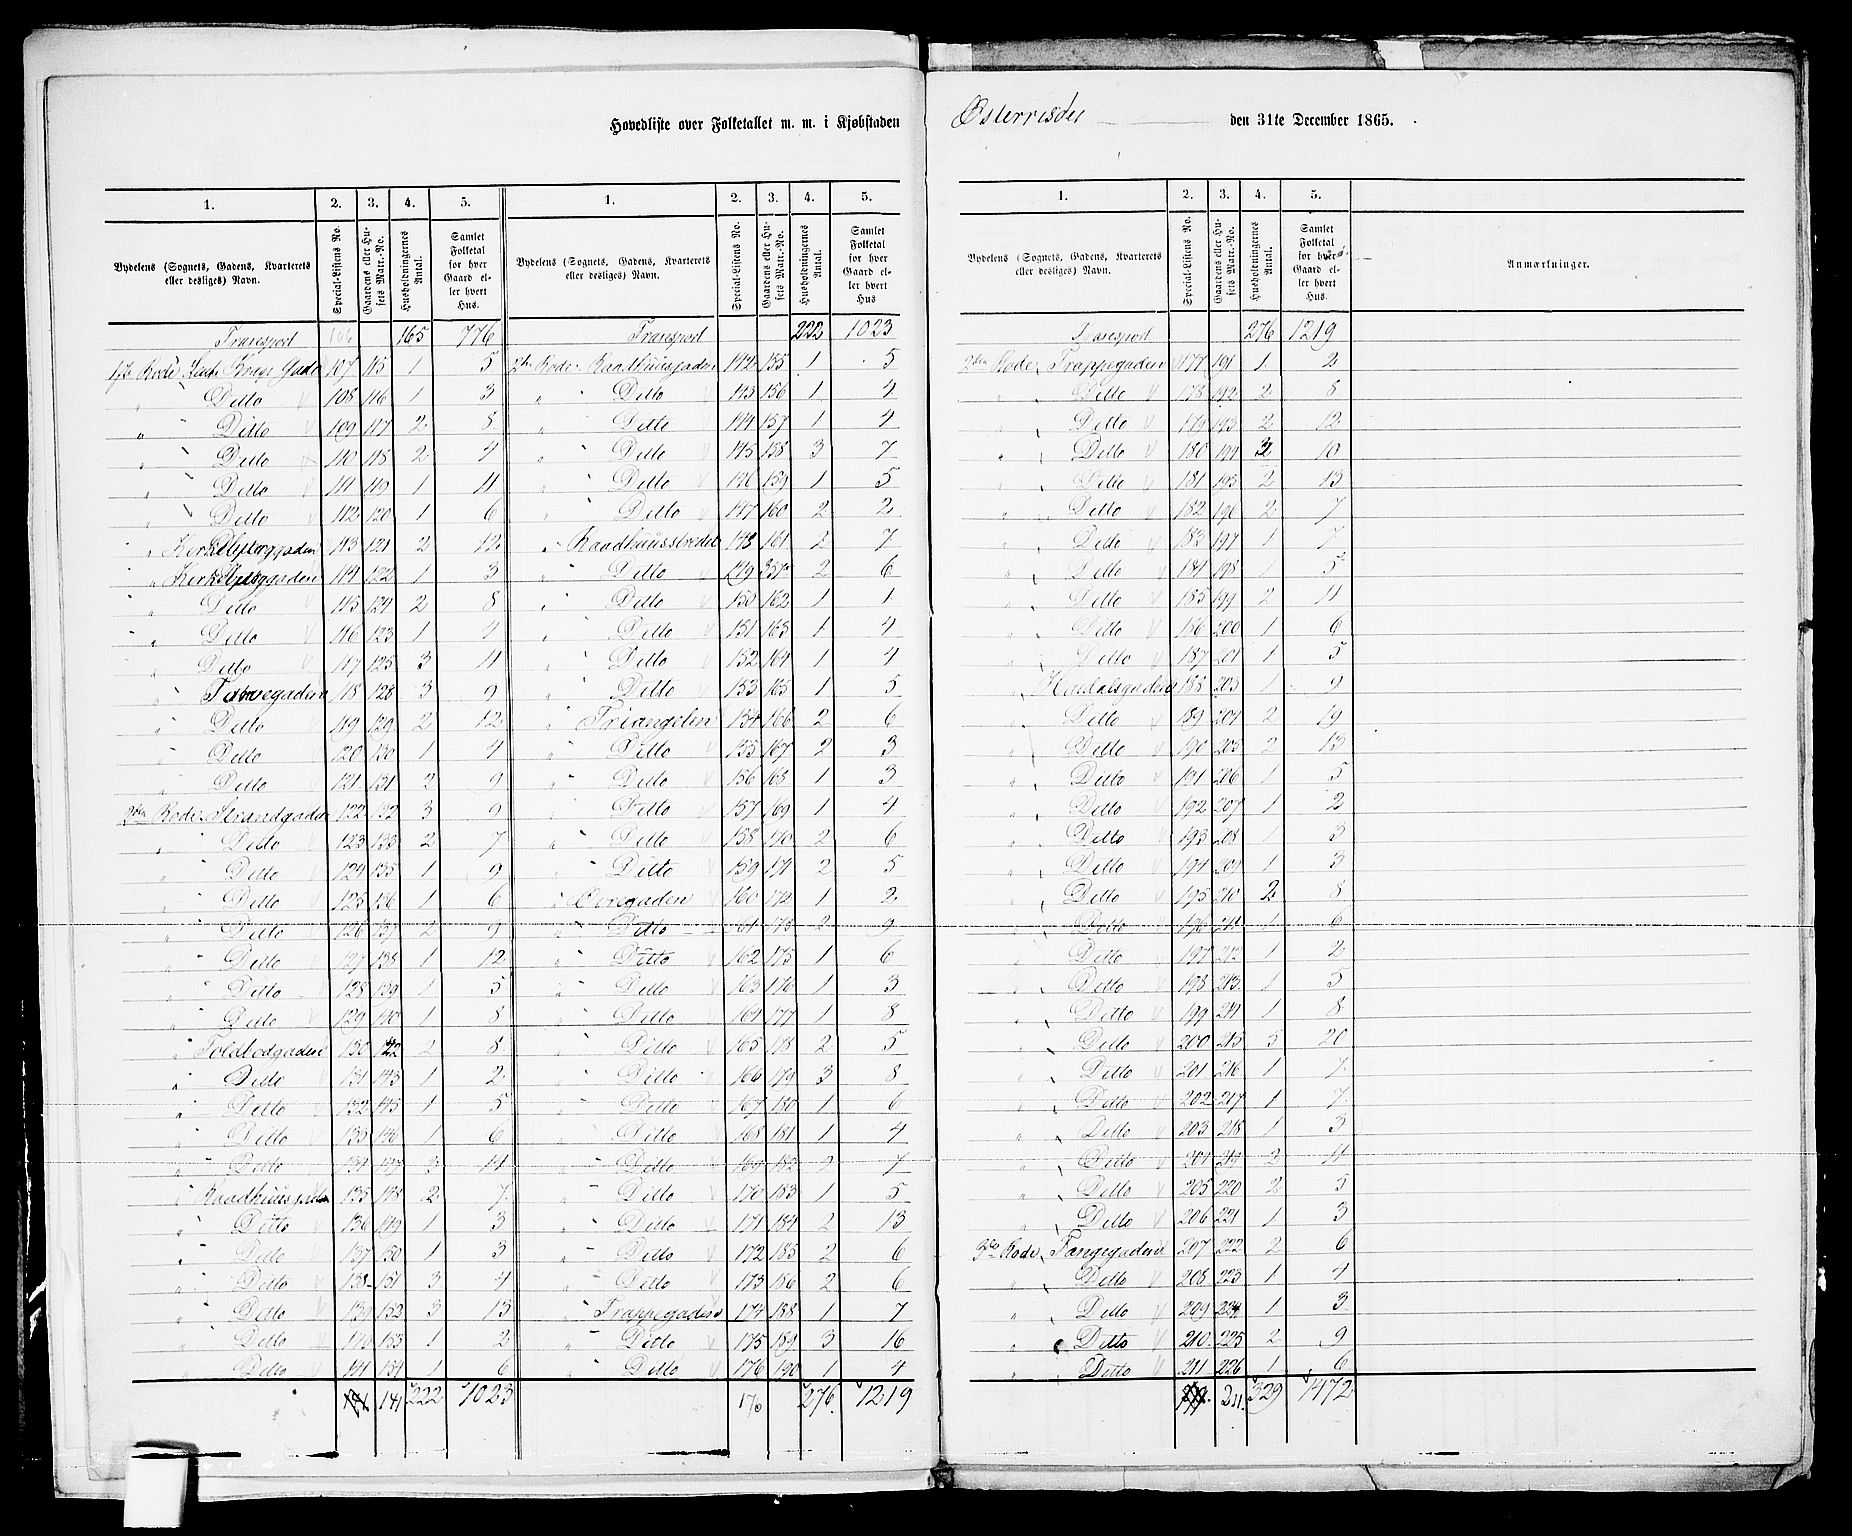 Hovedliste over Folketallet m. m. i Kjøbstaden Østerrisøer den 31te December 1865.
1. 2. 3. 4. 5. 1. 2. 3. 4. 5.
Bydelens (Sognets, Gadens, Kvarterets eller desliges) Navn. Special-Listens No. Gaardens eller Husets Matr.-No. Husholdningernes Antal. Samlet Folketal for hver Gaard eller hvert Hus. Bydelens (Sognets, Gadens, Kvarterets eller desliges) Navn. Special-Listens No. Gaardens eller Husets Matr.-No. Husholdningernes Antal. Samlet Folketal for hver Gaard eller hvert Hus
Transport 106 165 776 Transport 222 1023
1ste Rode Gade 107 115 1 5 2den Rode. Raadhuusgaden 142 155 1 5
" Ditto 108 116 1 3 " Ditto 143 156 1 4
" Ditto 109 117 2 8 " Ditto 144 157 1 4
" Ditto 110 118 2 4 " Ditto 145 158 3 7
" Ditto 111 119 1 11 " Ditto 146 159 1 5
" Ditto 112 120 1 6 " Ditto 147 160 2 2
" 113 121 2 12 " Raadhuusstrædet 148 161 2 7
" 114 122 1 3 " Ditto 149 2 6
" Ditto 115 124 2 8 " Ditto 150 162 1 1
" Ditto 116 123 1 4 " Ditto 151 163 1 4
" Ditto 117 125 3 11 " Ditto 152 164 1 4
" 118 128 3 9 " Ditto 153 165 1 5
" Ditto 119 129 2 12 " Triangelen 154 166 2 6
" Ditto 120 130 1 4 " Ditto 155 167 2 3
" Ditto 121 131 2 9 " Ditto 156 168 1 3
2den Rode. Strandgaden 122 132 3 9 " Ditto 157 169 1 4
" Ditto 123 133 2 7 " Ditto 158 170 2 6
" Ditto 124 135 1 9 " Ditto 159 171 2 5
" Ditto 125 136 1 6 " Øvregaden 160 172 1 2
" Ditto 126 137 2 9 " Ditto 161 173 2 9
" Ditto 127 138 1 12 " Ditto 162 175 1 6
" Ditto 128 139 1 5 " Ditto 163 176 1 3
" Ditto 129 140 1 8 " Ditto 164 177 1 8
" Toldbodgaden 130 142 2 8 " Ditto 165 178 2 5
" Ditto 131 143 1 2 " Ditto 166 179 3 8
" Ditto 132 145 1 5 " Ditto 167 180 1 6
" Ditto 133 146 1 6 " Ditto 168 181 1 4
" Ditto 134 147 3 11 " Ditto 169 182 2 7
" Raadhuusgaden 135 148 2 7 " Ditto 170 183 1 5
" Ditto 136 149 1 3 " Ditto 171 184 2 13
" Ditto 137 150 1 3 " Ditto 172 185 2 6
" Ditto 138 151 3 4 " Ditto 173 186 2 6
" Ditto 139 152 3 13 " Trappegaden 174 188 1 7
" Ditto 140 153 1 2 " Ditto 175 189 3 16
" Ditto 141 154 1 6 " Ditto 176 190 1 4
141 222 1023 176 276. 1219
1. 2. 3. 4. 5.
Bydelens (Sognets, Gadens, Kvarterets eller desliges) Navn. Special-Listens No. Gaardens eller Husets Matr.-No. Husholdningernes Antal. Samlet Folketal for hver Gaard eller hvert Hus. Anmærkninger.
Transport 276 1219
2den Rode. Trappegaden 177 191 1 2
" Ditto 178 192 2 8
" Ditto 179 193 2 12
" Ditto 180 194 10
" Ditto 181 195 2 13
" Ditto 182 196 2 7
" Ditto 183 197 1 7
" Ditto 184 198 1 5
" Ditto 185 199 2 11
" Ditto 186 200 1 6
" Ditto 187 201 1 5
" 188 203 1 9
" Ditto 189 204 2 19
" Ditto 190 205 2 13
" Ditto 191 206 1 5
" Ditto 192 207 1 2
" Ditto 193 208 1 3
" Ditto 194 209 1 3
" Ditto 195 210 2 8
" Ditto 196 211 1 6
" Ditto 197 212 1 2
" Ditto 198 213 1 5
" Ditto 199 214 1 8
" Ditto 200 215 5 20
" Ditto 201 216 1 7
" Ditto 202 217 1 7
" Ditto 203 218 1 3
" Ditto 204 219 2 11
" Ditto 205 220 2 5
" Ditto 206 221 1 3
3die Rode. Tangegaden 207 222 2 6
" Ditto 208 223 1 4
" Ditto 209 224 1 3
" Ditto 210 225 2 9
" Ditto 211 226 1 6
211. 329 1472